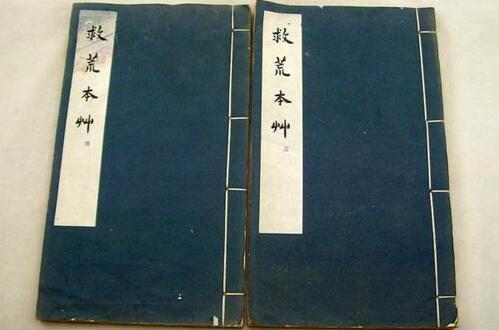 救荒本艸
救荒本艸
三